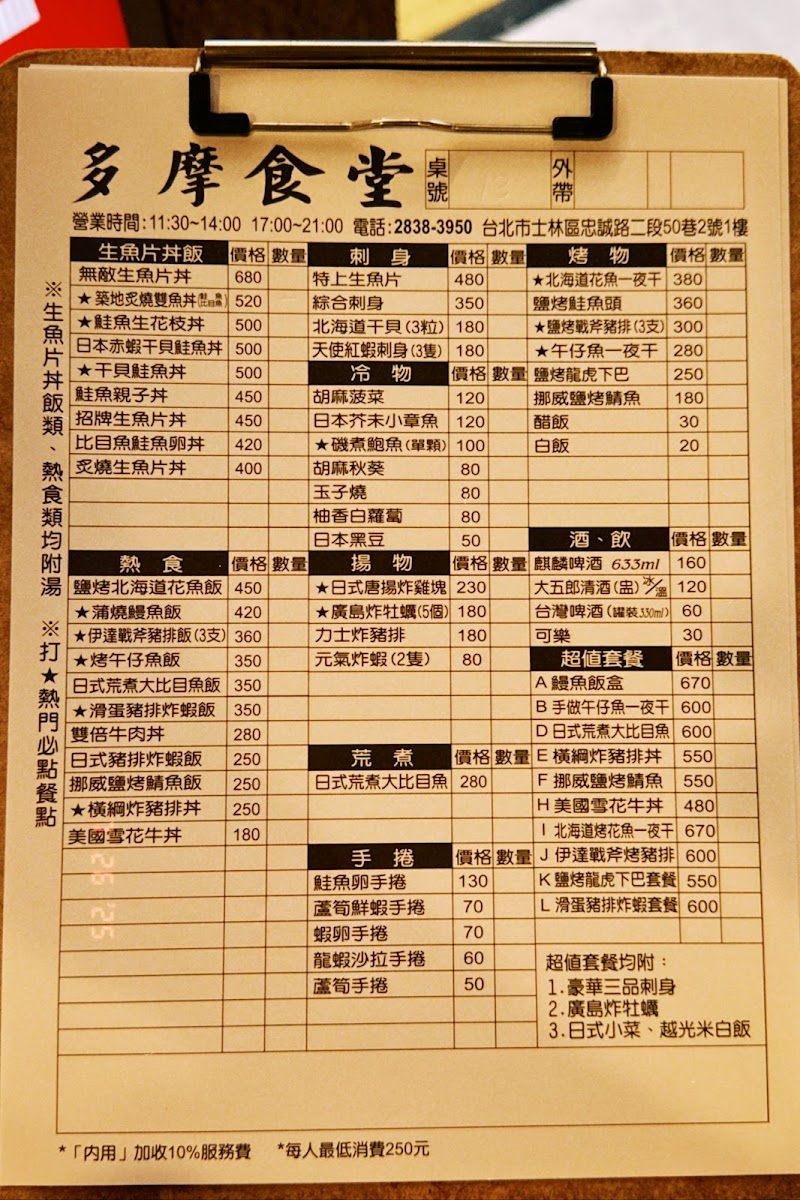 多摩食堂 桌號 外帶
營業時間:11:30~14:00 17:00~21:00 電話:2838-3950 台北市士林區忠誠路二段50巷2號1樓
※生魚片丼飯類、熱食類均附湯 ※打★熱門必點餐點
生魚片丼飯 價格 數量
無敵生魚片丼 680
★築地炙燒雙魚丼 520
★鮭魚生花枝丼 500
日本赤蝦干貝鮭魚丼 500
★干貝鮭魚丼 500
鮭魚親子丼 450
招牌生魚片丼 450
比目魚鮭魚卵丼 420
炙燒生魚片丼 400
熱食 價格 數量
鹽烤北海道花魚飯 450
★蒲燒鰻魚飯 420
★伊達戰斧豬排飯(3支) 360
★烤午仔魚飯 350
日式荒煮大比目魚飯 350
★滑蛋豬排炸蝦飯 350
雙倍牛肉丼 280
日式豬排炸蝦飯 250
挪威鹽烤鯖魚飯 250
★橫綱炸豬排丼 250
美國雪花牛丼 180
刺身 價格 數量
特上生魚片 480
綜合刺身 350
北海道干貝(3粒) 180
天使紅蝦刺身(3隻) 180
冷物 價格 數量
胡麻菠菜 120
日本芥末小章魚 120
★磯煮鮑魚(單顆) 100
胡麻秋葵 80
玉子燒 80
柚香白蘿蔔 80
日本黑豆 50
揚物 價格 數量
★日式唐揚炸雞塊 230
★廣島炸牡蠣(5個) 180
力士炸豬排 180
元氣炸蝦(2隻) 80
荒煮 價格 數量
日式荒煮大比目魚 280
手捲 價格 數量
鮭魚卵手捲 130
蘆筍鮮蝦手捲 70
蝦卵手捲 70
龍蝦沙拉手捲 60
蘆筍手捲 50
烤物 價格 數量
★北海道花魚一夜干 380
鹽烤鮭魚頭 360
★鹽烤戰斧豬排(3支) 300
★午仔魚一夜干 280
鹽烤龍虎下巴 250
挪威鹽烤鯖魚 180
醋飯 30
白飯 20
酒、飲 價格 數量
麒麟啤酒 633ml 160
大五郎清酒(盅)冰/溫 120
台灣啤酒(罐裝330ml) 60
可樂 30
超值套餐 價格 數量
A 鰻魚飯盒 670
B 手做午仔魚一夜干 600
D 日式荒煮大比目魚 600
E 橫綱炸豬排丼 550
F 挪威鹽烤鯖魚 550
H 美國雪花牛丼 480
I 北海道烤花魚一夜干 670
J 伊達戰斧烤豬排 600
K 鹽烤龍虎下巴套餐 550
L 滑蛋豬排炸蝦套餐 600
超值套餐均附：
1.豪華三品刺身
2.廣島炸牡蠣
3.日式小菜、越光米白飯
*「內用」加收10%服務費 *每人最低消費250元